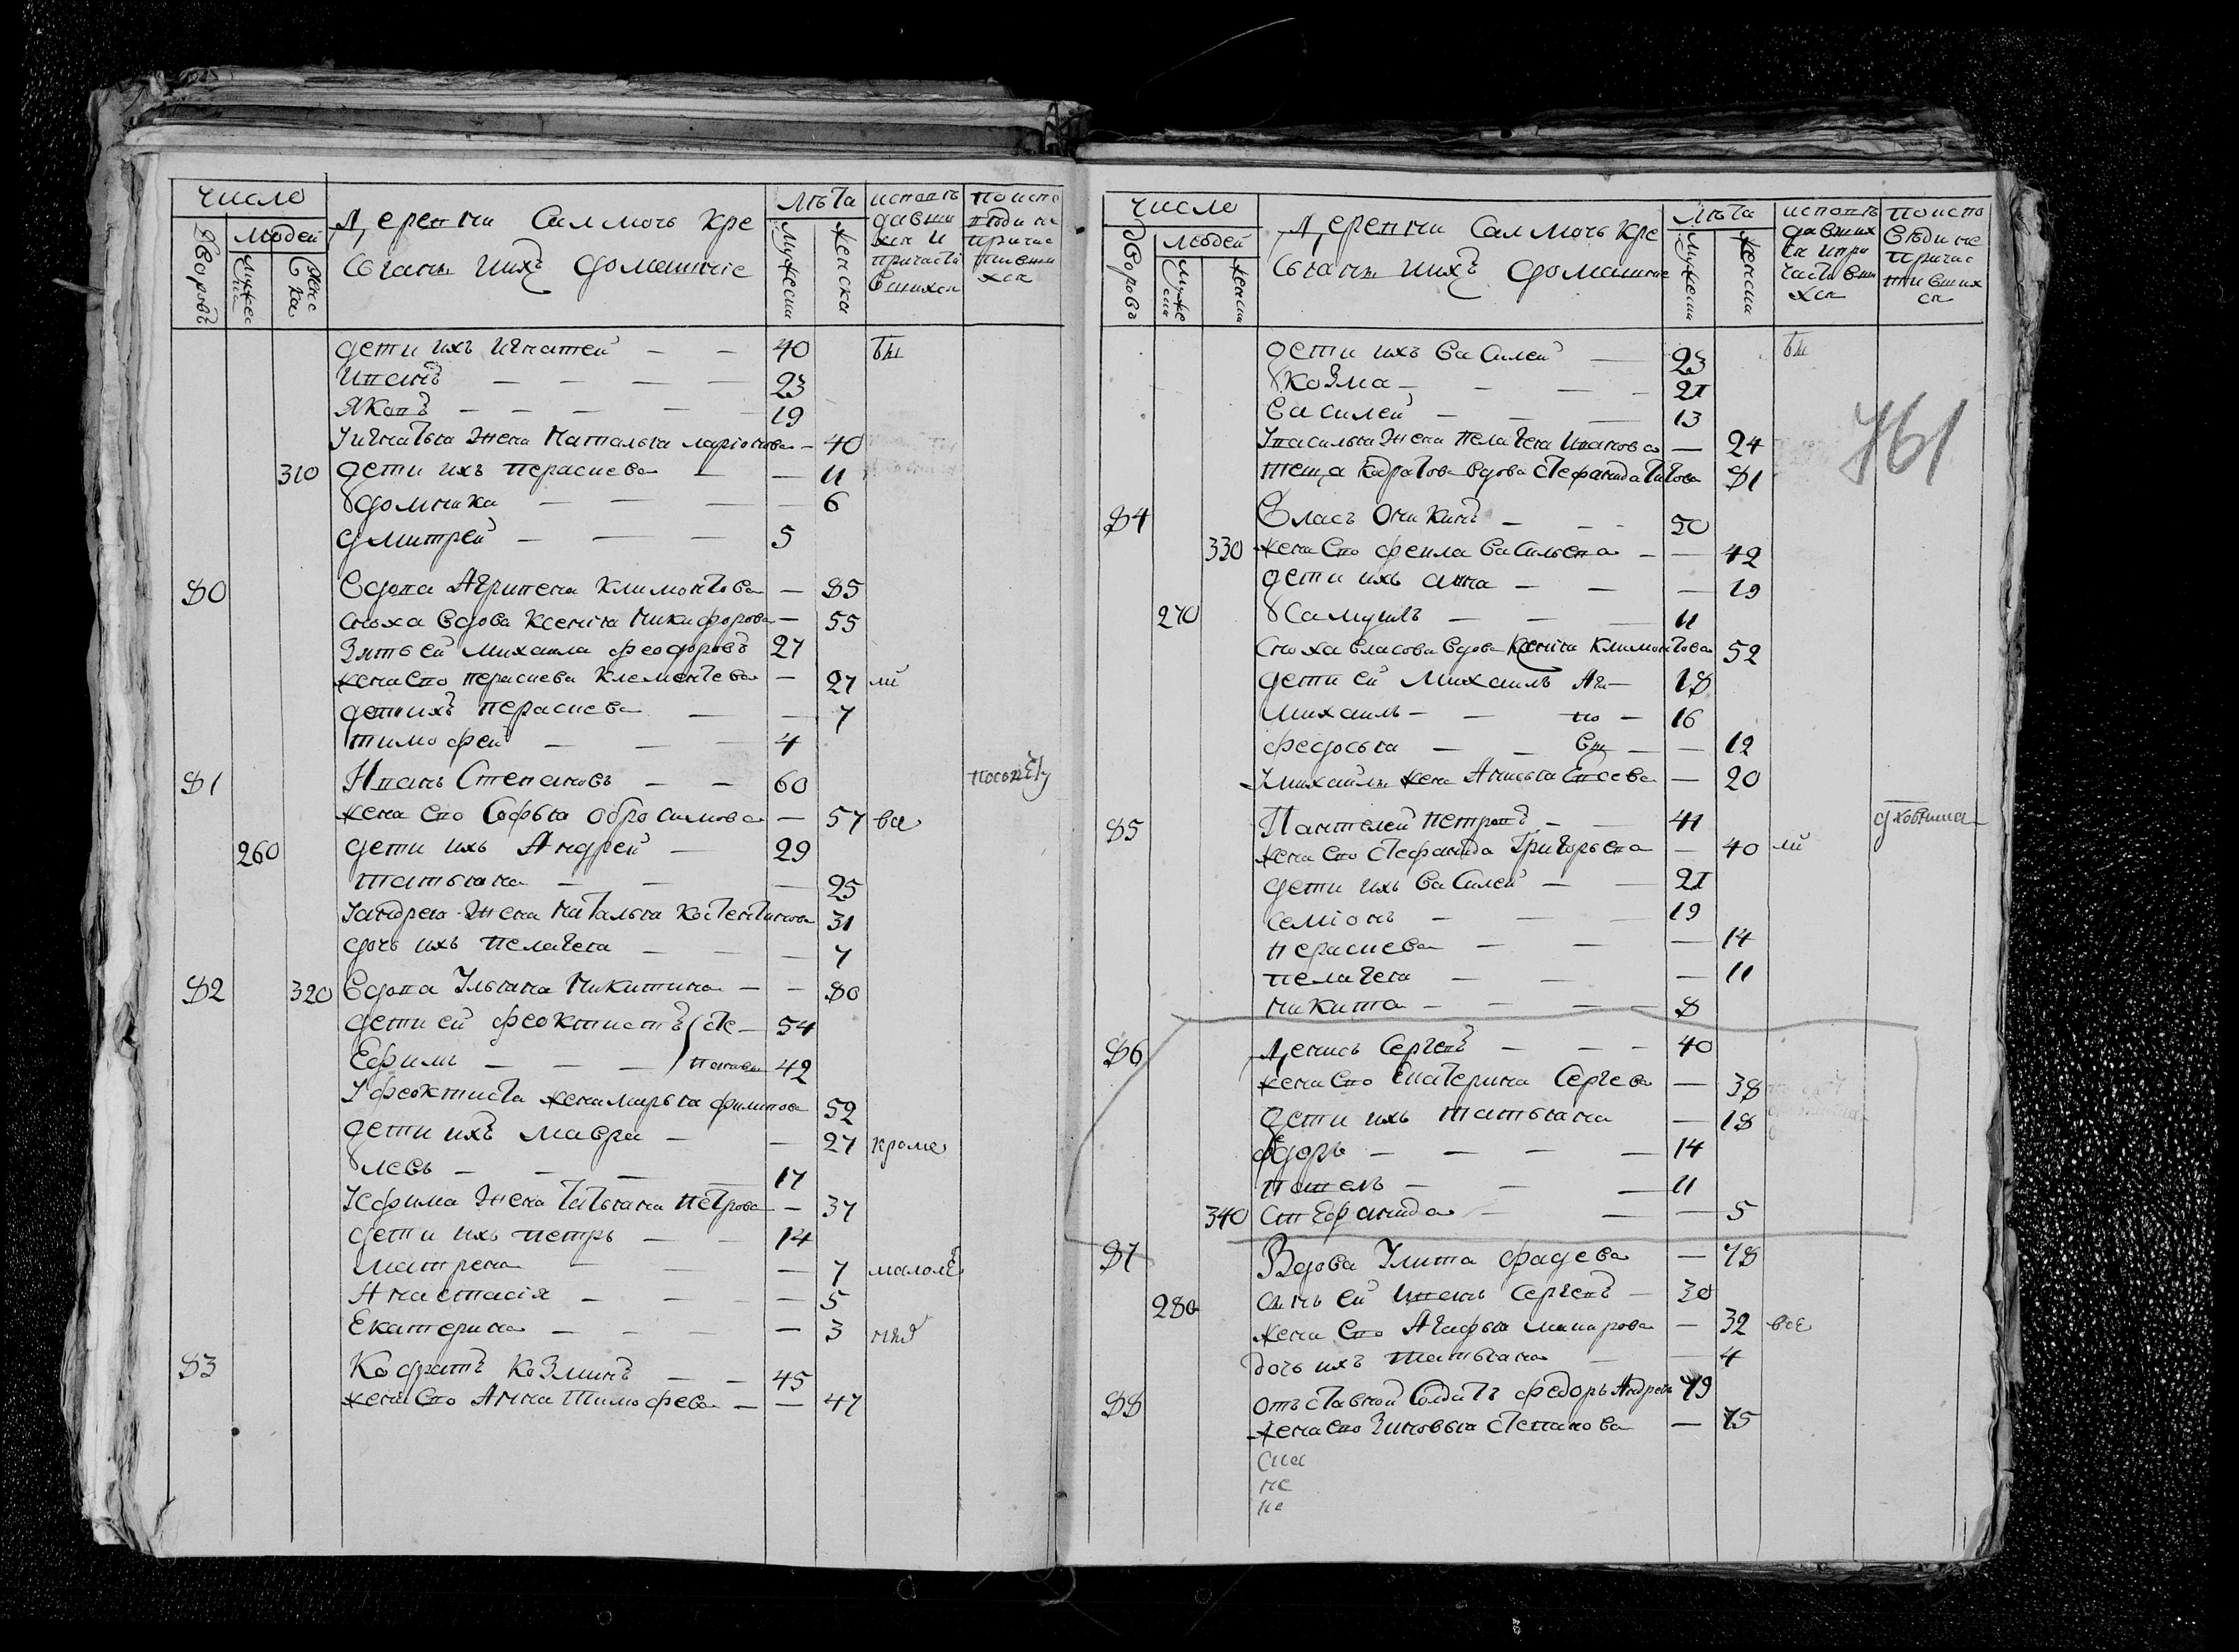 число
людей
Дворовъ
Деревни Салмочь кре
стьянъ ихъ домашние
лѣта
мужески
женска
исповѣ
давши
хся и
причасти
вшихся
по испо
вѣди не
причас
тивши
хся
дети ихъ Игнатей — — 40 бы
Иванъ — — — — 23
Яковъ — — — — 19
У Игнатья жена Наталья Ларионова — 40
310 дети ихъ Парасисева — — 11
Домника — — — 6
Дмитрей — — — 5
80 Вдова Агрипена Климонтова — 85
сноха вдова Ксения Никифорова — 55
Зять ей Михаила Феодоровъ 27
жена ево Парасиева Клементева — 27 ли
дети ихъ Парасиева — — 7
Тимофей — — — 4
81 Иванъ Степановъ — — 60
жена ево Софья Обросимова — 57 все
260 дети ихъ Андрей — 29
Татьяна — — — 25
У Андрея жена Наталья Костентинова 31
дочь ихъ Пелагея — — — 7
82 320 Вдова Ульяна Никитина — — 80
дети ей Феоктистъ Сте — 54
Ефимъ — — — пановы 42
У Феоктиста жена Марья Филипова 52
дети ихъ Мавра — — 27 кроме
Левъ — — — — 17
У Ефима жена Татьяна Петрова — 37
дети ихъ Петръ — — 14
Матрена — — 7 малолѣ
Анастасiя — — — — 5
Екатерина — — — — 3
83 Кодратъ Козминъ — — 45
жена ево Анна Тимофева — — 47
число
людей
дворовъ
Деревни Салмочь кре
стьянъ ихъ домашние
лѣта
мужески
женски
исповѣ
давших
ся и при
частивши
хся
по испо
вѣди не
причас
тивших
ся
дети ихъ Василей — 23 бы
Козма — — — — 21
Василей — — — 13
У Василья жена Пелагея Иванова — 24
теща Кодратова вдова Стефанида Титова 81
761
84 Власъ Оникинъ — — — 50
330 жена ево Феила Васильева — — 42
дети ихъ Анна — — — 19
270 Самуилъ — — — 11
сноха Власова вдова Ксения Климонтова 52
дети ей Михаилъ Ан — 18
Михаилъ — — по — 16
Федосья — — вы — — 12
У Михаилы жена Анисья Евсева — 20
85 Пантелей Петровъ — — 41
жена ево Стефанида Григорьева — 40 ли
дети ихъ Василей — — 21
Семiонъ — — — 19
Парасиева — — — 14
Пелагея — — — 11
Никита — — — — 8
86 Денисъ Сергеевъ — — — 40
жена ево Екатерина Сергева — 38
дети ихъ Татьяна — 18
Фдоръ — — — — 14
Павелъ — — — 11
340 Стефанида — — — 5
87 Вдова Улита Фадева — 78
280 сынъ ей Иванъ Сергеевъ — 30
жена ево Агафья Макарова — 32 все
дочь ихъ Татьяна — — 4
88 отъставной солдатъ Федоръ Андреевъ 79
жена ево Зиновья Степанова — 75